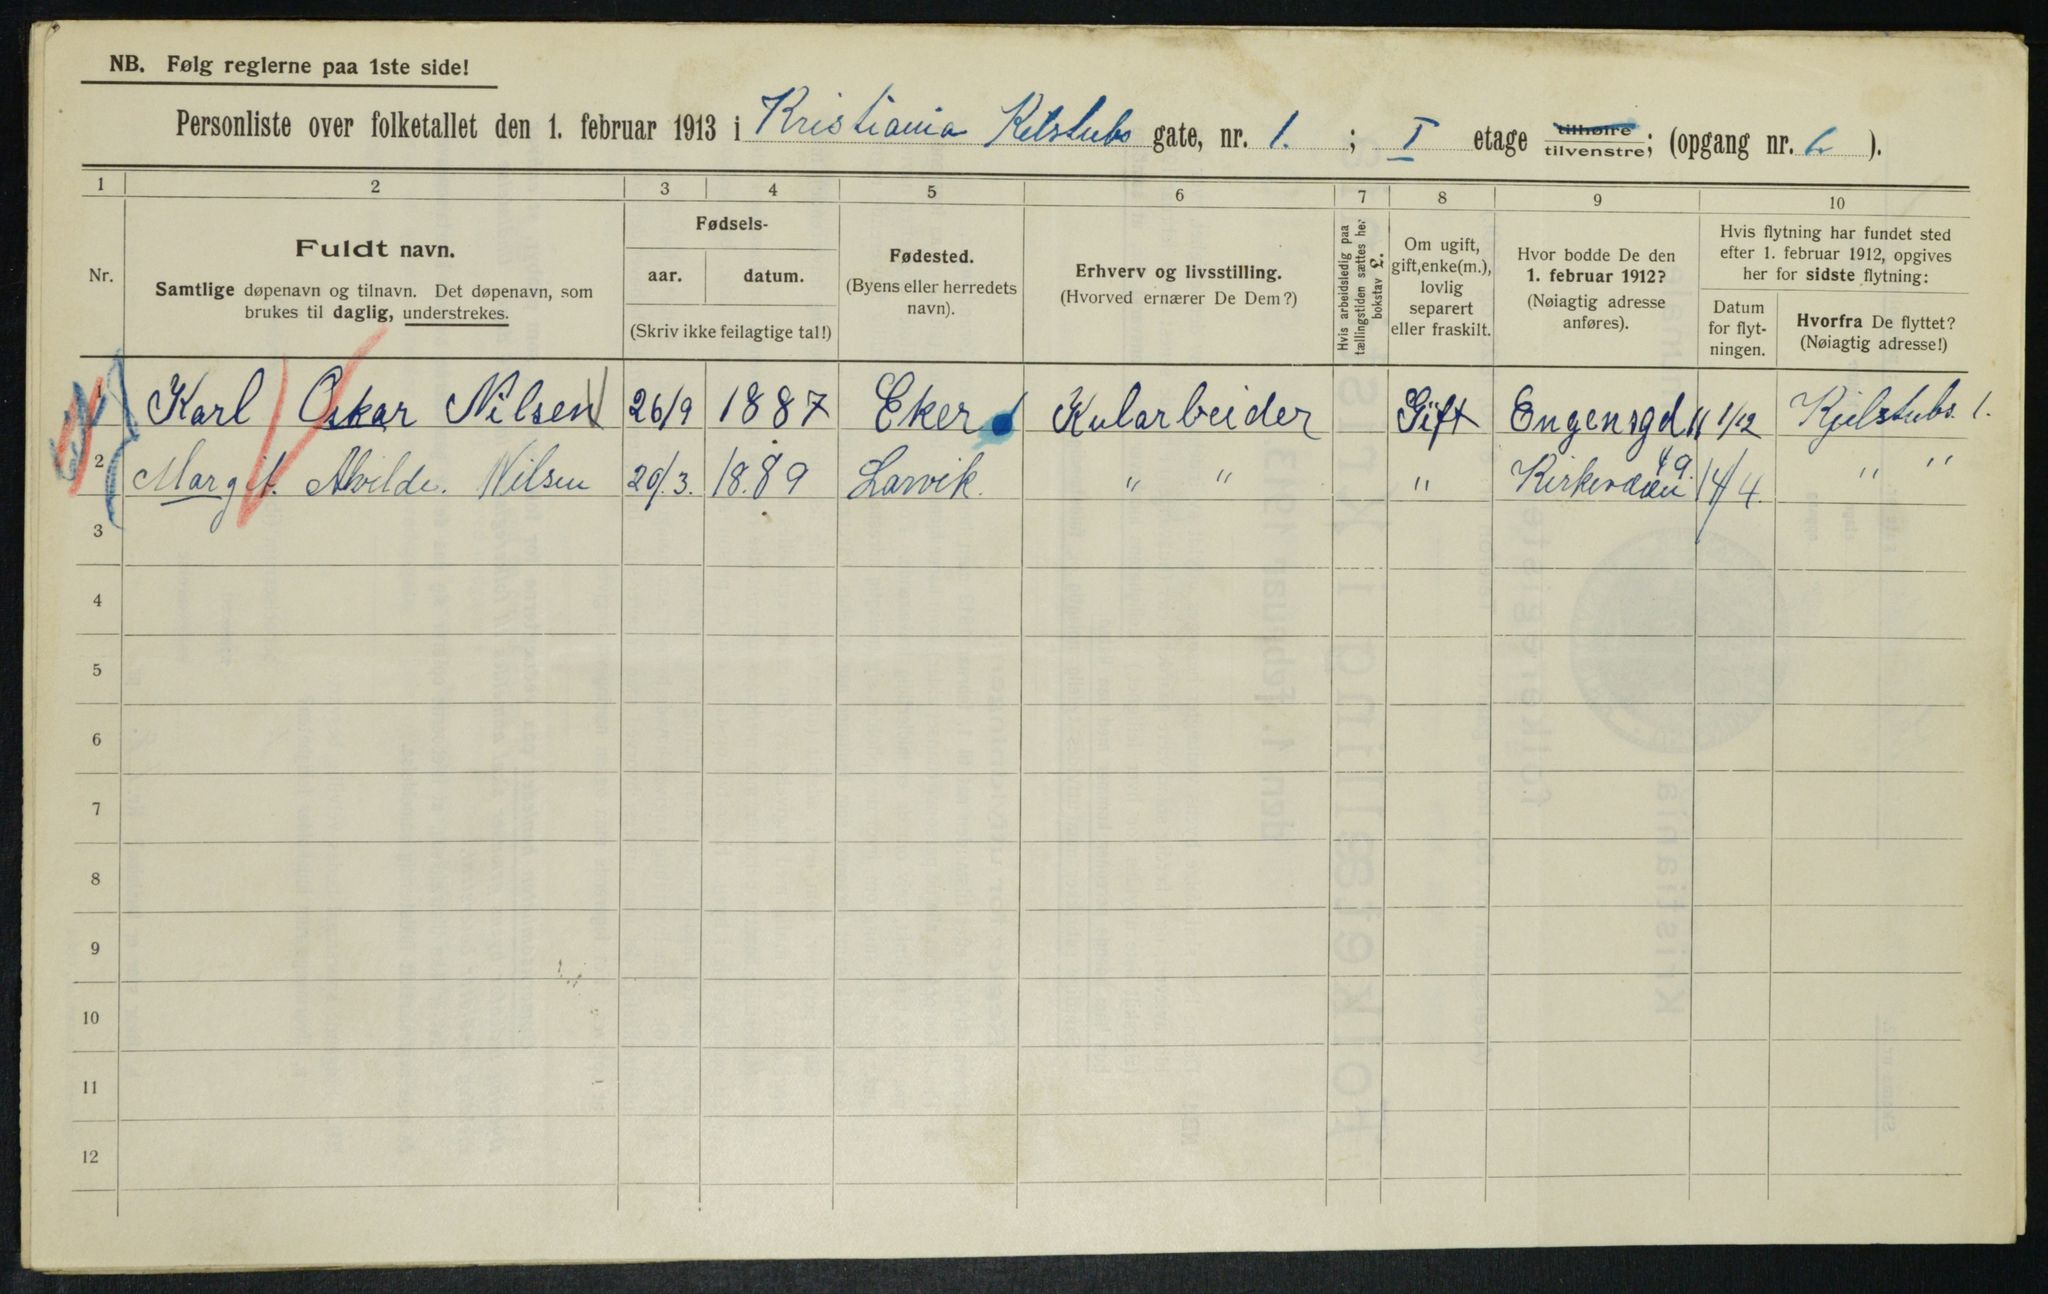 NB. Følg reglerne paa 1ste side!
Personliste over folketallet den 1. februar 1913 i Kristiania Kelstubs gate, nr. 1. ; I etage tilhøire tilvenstre; (opgang nr. ).
1 2 3 4 5 6 7 8 9 10
Nr.
Fuldt navn.
Samtlige døpenavn og tilnavn. Det døpenavn, som
brukes til daglig, understrekes.
Fødsels-
aar. datum.
(Skriv ikke feilagtige tal!)
Fødested.
(Byens eller herredets
navn).
Erhverv og livsstilling.
(Hvorved ernærer De Dem?)
Hvis arbeidsledig paa
tællingstiden sættes her
bokstav L.
Om ugift,
gift, enke(m.),
lovlig
separert
eller fraskilt.
Hvor bodde De den
1. februar 1912?
(Nøiagtig adresse
anføres).
Hvis flytning har fundet sted
efter 1. februar 1912, opgives
her for sidste flytning:
Datum
for flyt-
ningen.
Hvorfra De flyttet?
(Nøiagtig adresse!)
1 Karl Oskar Nilsen 26/9 1887 Eker Kularbeider Gift Engensgd 11 1/12 Kjelstubs. 1.
2 Margit. Alvilde. Nilsen 20/.3. 18.89 Larvik. " " " Kirkeveien 49. 14/4. " "
3
4
5
6
7
8
9
10
11
12